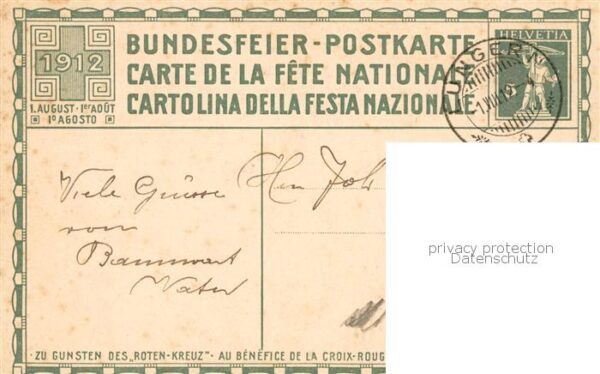 1912
1. AUGUST - 1er AOÛT
1º AGOSTO
BUNDESFEIER-POSTKARTE
CARTE DE LA FÊTE NATIONA
CARTOLINA DELLA FESTA NAZIONALE
HELVETIA
LUNGERN
Viele Grüsse
von
Bannwart
Vater
Hrn Joh
privacy protection
Datenschutz
ZU GUNSTEN DES „ROTEN-KREUZ" - AU BÉNÉFICE DE LA CROIX-ROUG